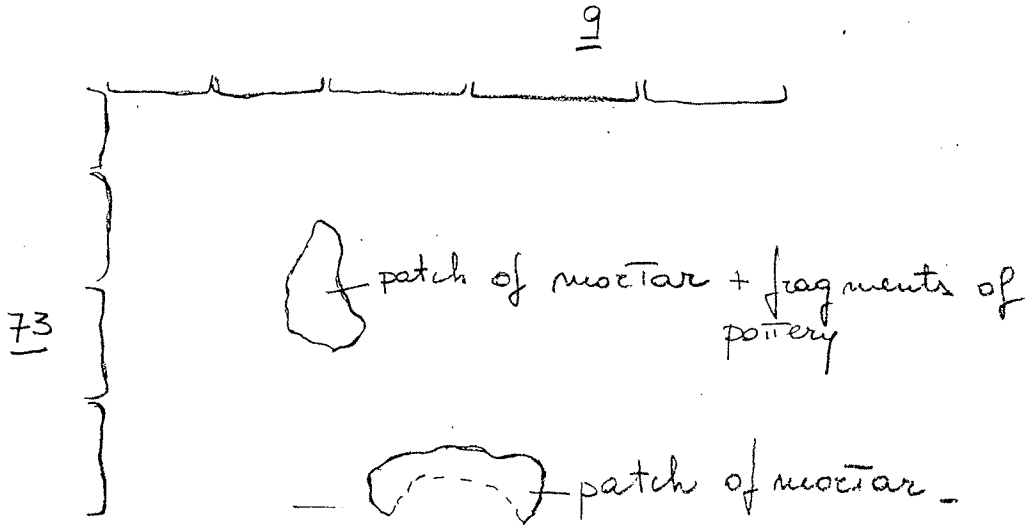 9
patch of mortar + fragments of
pottery
73
patch of mortar -